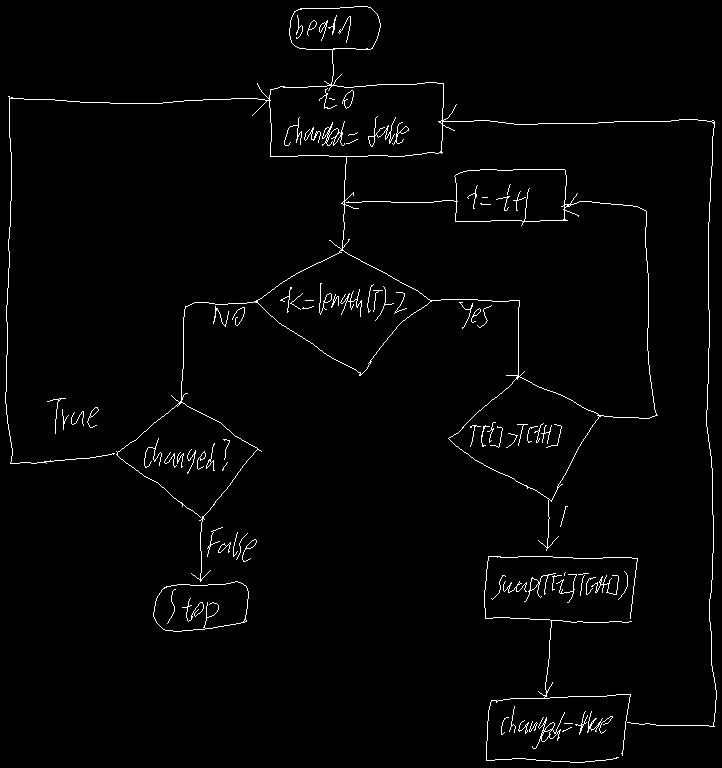 begin
i=0
changed = false
i=i+1
i<=length(T)-2
NO
Yes
True
changed?
T[i]>T[i+1]
False
swap(T[i],T[i+1])
Stop
changed=true